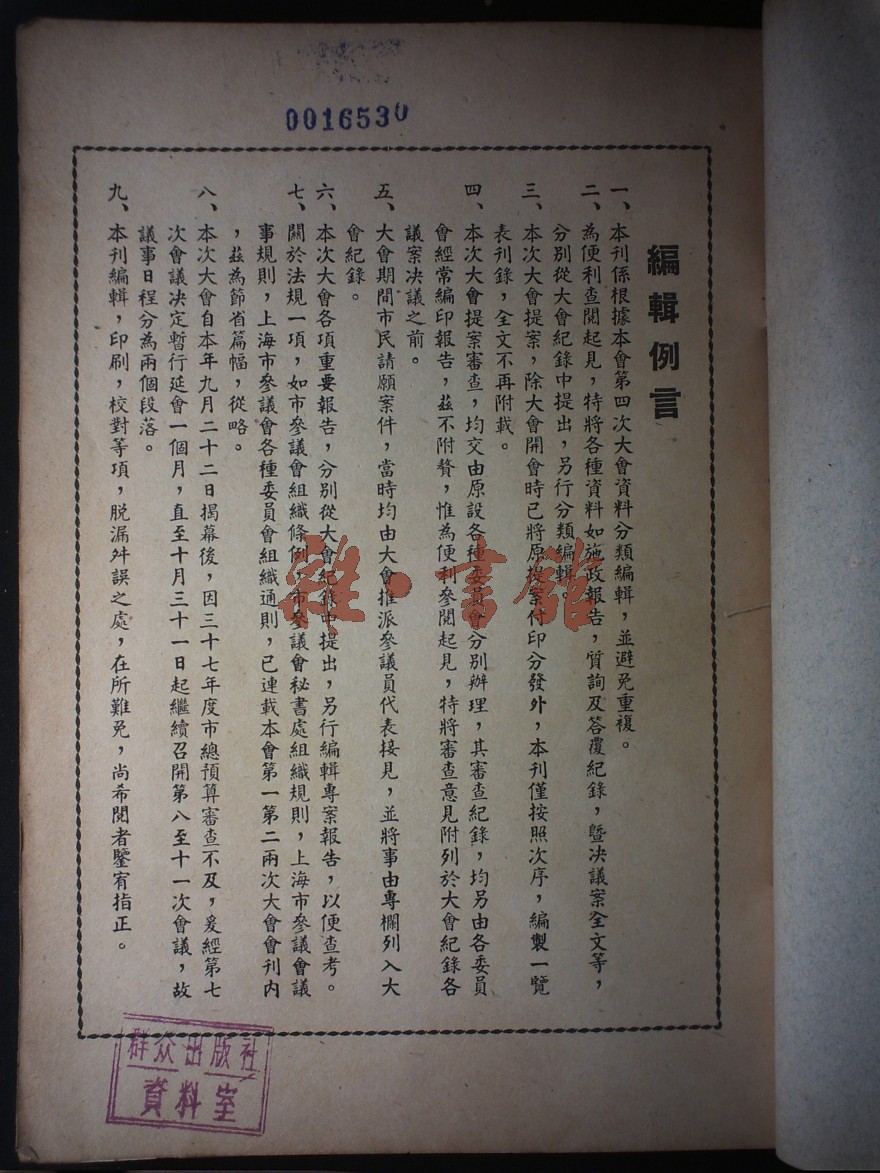 0016530
編輯例言
一、本刊係根據本會第四次大會資料分類編輯，並避免重複。
二、為便利查閱起見，特將各種資料如施政報告，質詢及答覆紀錄，暨決議案全文等，
分別從大會紀錄中提出，另行分類編輯。
三、本次大會提案，除大會開會時已將原提案付印分發外，本刊僅按照次序，編製一覽
表刊錄，全文不再附載。
四、本次大會提案審查，均交由原設各種委員會分別辦理，其審查紀錄，均另由各委員
會經常編印報告，茲不附贅，惟為便利參閱起見，特將審查意見附列於大會紀錄各
議案決議之前。
五、大會期間市民請願案件，當時均由大會推派參議員代表接見，並將事由專欄列入大
會紀錄。
六、本次大會各項重要報告，分別從大會紀錄中提出，另行編輯專案報告，以便查考。
七、關於法規一項，如市參議會組織條例，市參議會秘書處組織規則，上海市參議會議
事規則，上海市參議會各種委員會組織通則，已連載本會第一第二兩次大會會刊内
，茲為節省篇幅，從略。
八、本次大會自本年九月二十二日揭幕後，因三十七年度市總預算審查不及，爰經第七
次會議決定暫行延會一個月，直至十月三十一日起繼續召開第八至十一次會議，故
議事日程分為兩個段落。
九、本刊編輯，印刷，校對等項，脱漏舛誤之處，在所難免，尚希閱者鑒宥指正。
雜·書館
群众出版社
資料室